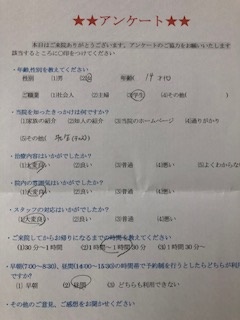 ★★アンケート★★
本日はご来院ありがとうございます。アンケートのご協力をお願いいたします
該当するところに○印をつけてください
・年齢,性別を教えてください
性別 (1)男 (2)女 年齢( 19 )才代
ご職業 (1)社会人 (2)主婦 (3)学生 (4)その他( )
・当院を知ったきっかけは何ですか?
(1)家族の紹介 (2)知人の紹介 (3)当院のホームページ (4)通りがかり
(5)その他(
・治療内容はいかがでしたか?
(1)大変良い (2)良い (3)普通 (4)悪い (5)よくわからな
・院内の雰囲気はいかがでしたか?
(1)大変良い (2)良い (3)普通 (4)悪い
・スタッフの対応はいかがでしたか?
(1)大変良い (2)良い (3)普通 (4)悪い
・ご来院してからお帰りになるまでの時間を教えてください
(1)30分~1時間 (2)1時間~1時間30分 (3)1時間30分~
・早朝(7:00~8:30)、昼間(14:00~15:30)の時間帯で予約制を行うとしたらどちらが利
(1)早朝 (2)昼間 (3)どちらも利用できない
・その他のご意見、ご感想をお聞かせください